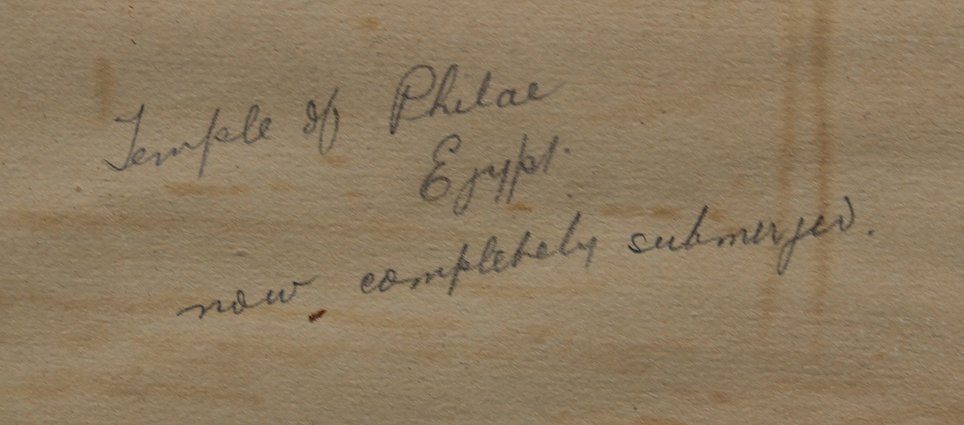 Temple of Philae
Egypt.
now completely submerged.